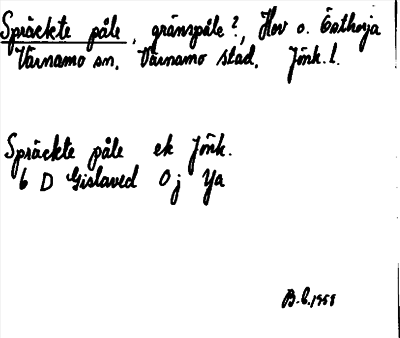 Spräckte påle, gränspåle?, Hov o. Östhorja
Värnamo sn. Värnamo stad. Jönk. l.
Spräckte påle ek Jönk.
6 D Gislaved Oj Ya
B.L. 1958